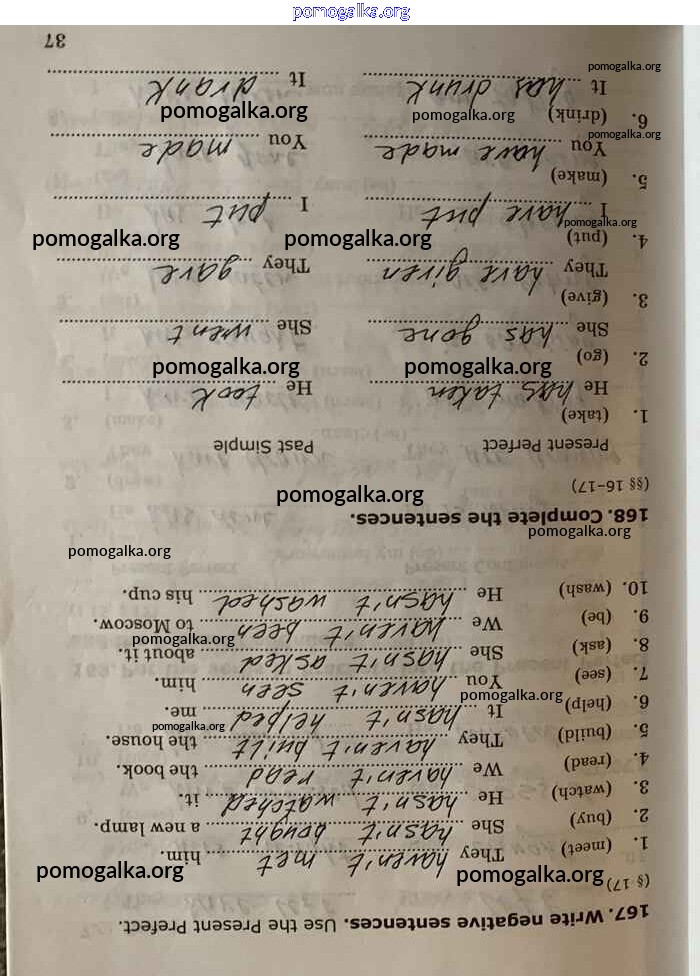 pomogalka.org
167. Write negative sentences. Use the Present Prefect.
(§ 17)
1. (meet) They haven't met him.
2. (buy) She hasn't bought a new lamp.
3. (watch) He hasn't watched it.
4. (read) We haven't read the book.
5. (build) They haven't built the house.
6. (help) It hasn't helped me.
7. (see) You haven't seen him.
8. (ask) She hasn't asked about it.
9. (be) We haven't been to Moscow.
10. (wash) He hasn't washed his cup.
168. Complete the sentences.
(§§ 16–17)
Present Perfect Past Simple
1. (take)
He has taken He took
2. (go)
She has gone She went
3. (give)
They have given They gave
4. (put)
I have put I put
5. (make)
You have made You made
6. (drink)
It has drunk It drank
37
pomogalka.org
pomogalka.org
pomogalka.org
pomogalka.org
pomogalka.org
pomogalka.org
pomogalka.org
pomogalka.org
pomogalka.org
pomogalka.org
pomogalka.org
pomogalka.org
pomogalka.org
pomogalka.org
pomogalka.org
pomogalka.org
pomogalka.org